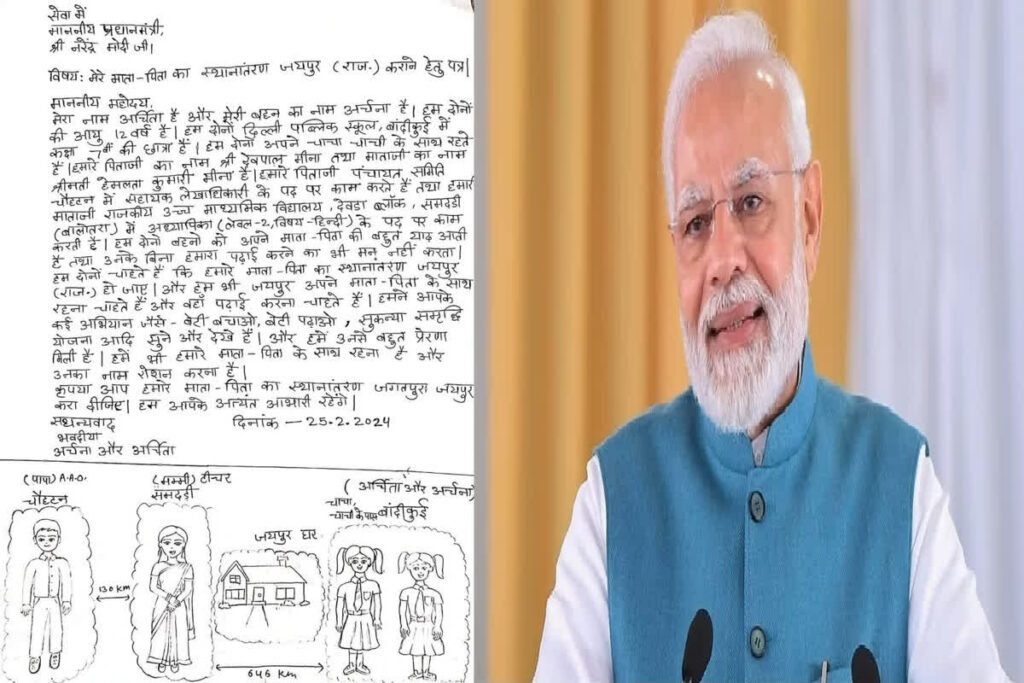 सेवा में
माननीय प्रधानमंत्री,
श्री नरेंद्र मोदी जी।
विषय: मेरे माता-पिता का स्थानांतरण जयपुर (राज.) कराने हेतु पत्र।
माननीय महोदय,
मेरा नाम अर्चिता है और मेरी बहन का नाम अर्चना है। हम दोनों
की आयु 12 वर्ष है। हम दोनों दिल्ली पब्लिक स्कूल, बांदीकुई में
कक्षा 7वीं की छात्रा हैं। हम दोनों अपने चाचा-चाची के साथ रहते
हैं। हमारे पिताजी का नाम श्री देवपाल मीना तथा माताजी का नाम
श्रीमती हेमलता कुमारी मीना है। हमारे पिताजी पंचायत समिति
चौहटन में सहायक लेखाधिकारी के पद पर काम करते हैं तथा हमारी
माताजी राजकीय उच्च माध्यमिक विद्यालय, देवडा ब्लॉक, समदडी
(बालोतरा) में अध्यापिका (लेवल-2, विषय-हिन्दी) के पद पर काम
करती है। हम दोनों बहनों को अपने माता-पिता की बहुत याद आती
है तथा उनके बिना हमारा पढ़ाई करने का भी मन नहीं करता।
हम दोनों चाहते हैं कि हमारे माता-पिता का स्थानांतरण जयपुर
(राज.) हो जाए। और हम भी जयपुर अपने माता-पिता के साथ
रहना चाहते हैं और वहाँ पढ़ाई करना चाहते हैं। हमने आपके
कई अभियान जैसे - बेटी बचाओ, बेटी पढ़ाओ, सुकन्या समृद्धि
योजना आदि सुने और देखे हैं। और हमें उनसे बहुत प्रेरणा
मिली है। हमें भी हमारे माता-पिता के साथ रहना है और
उनका नाम रोशन करना है।
कृपया आप हमारे माता-पिता का स्थानांतरण जगतपुरा जयपुर
करा दीजिए। हम आपके अत्यंत आभारी रहेंगे।
सधन्यवाद दिनांक — 25.2.2024
भवदीया
अर्चना और अर्चिता
(पापा) A.A.O.
चौहटन
(मम्मी) टीचर
समदड़ी
(अर्चिता और अर्चना)
चाचा,
चाची के पास बांदीकुई
जयपुर घर
130 km
646 km